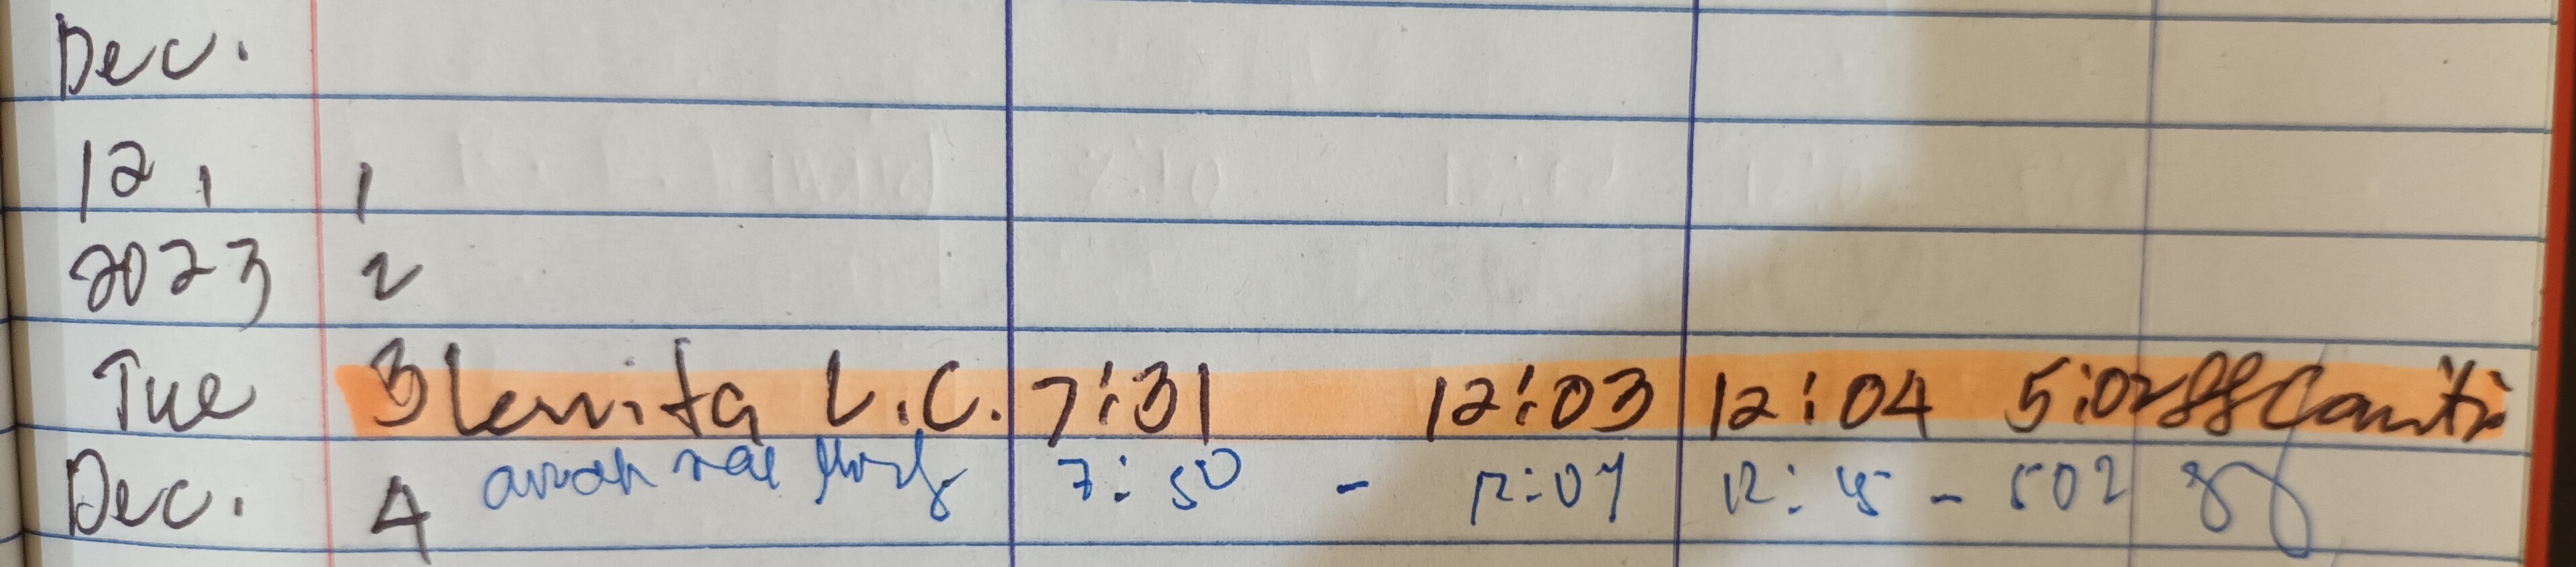 Dec.
12, 1
2023 2
Tue 3 Lenita L.C. 7:31 12:03 12:04 5:02
Dec. 4 7:50 - 12:07 12:45 - 502